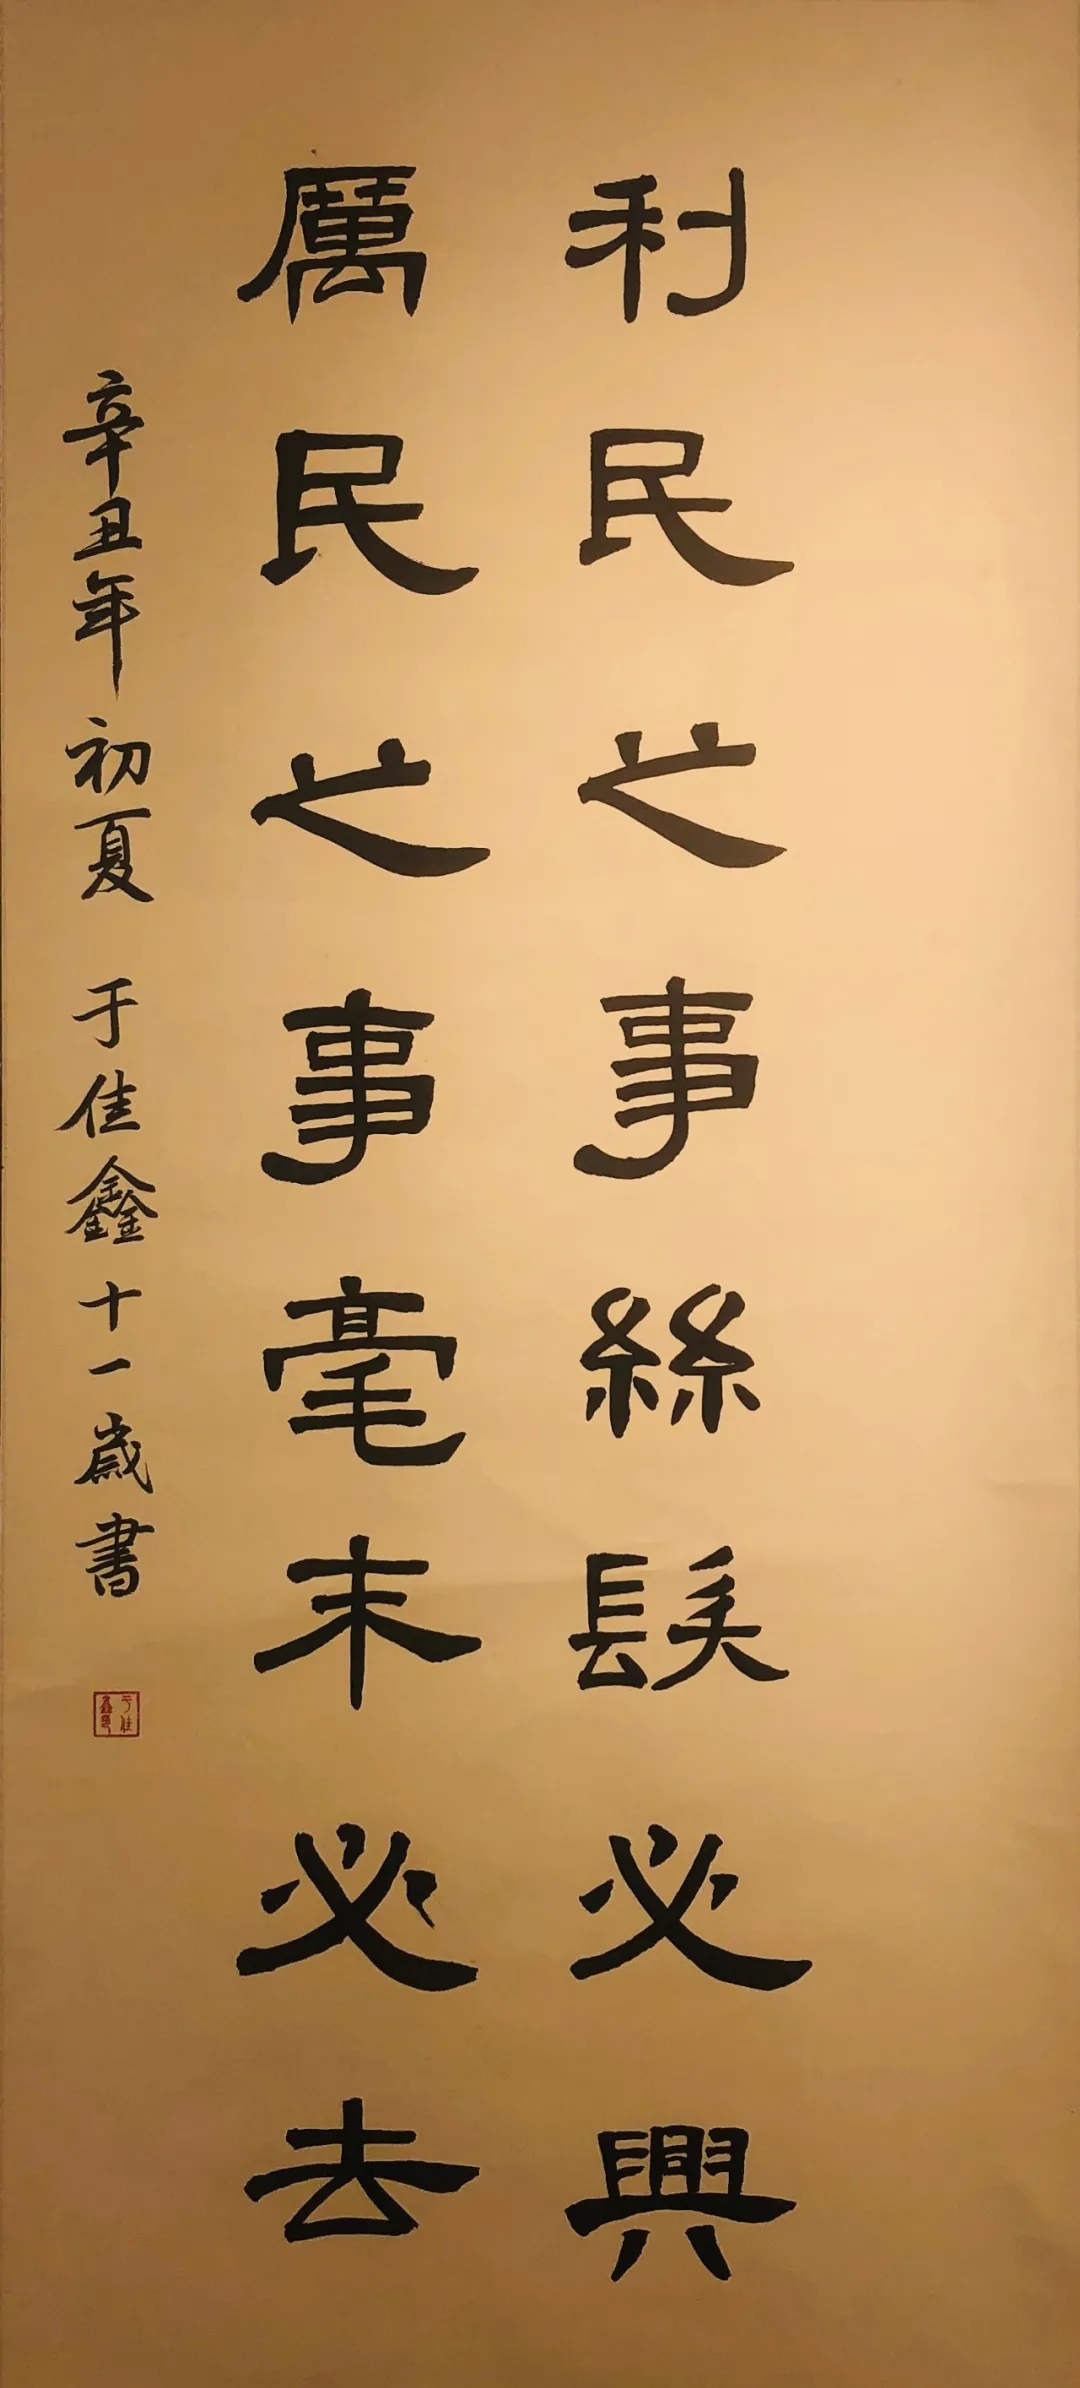 利民之事絲髮必興
厲民之事毫末必去
辛丑年初夏于佳鑫十一歲書
于佳鑫印